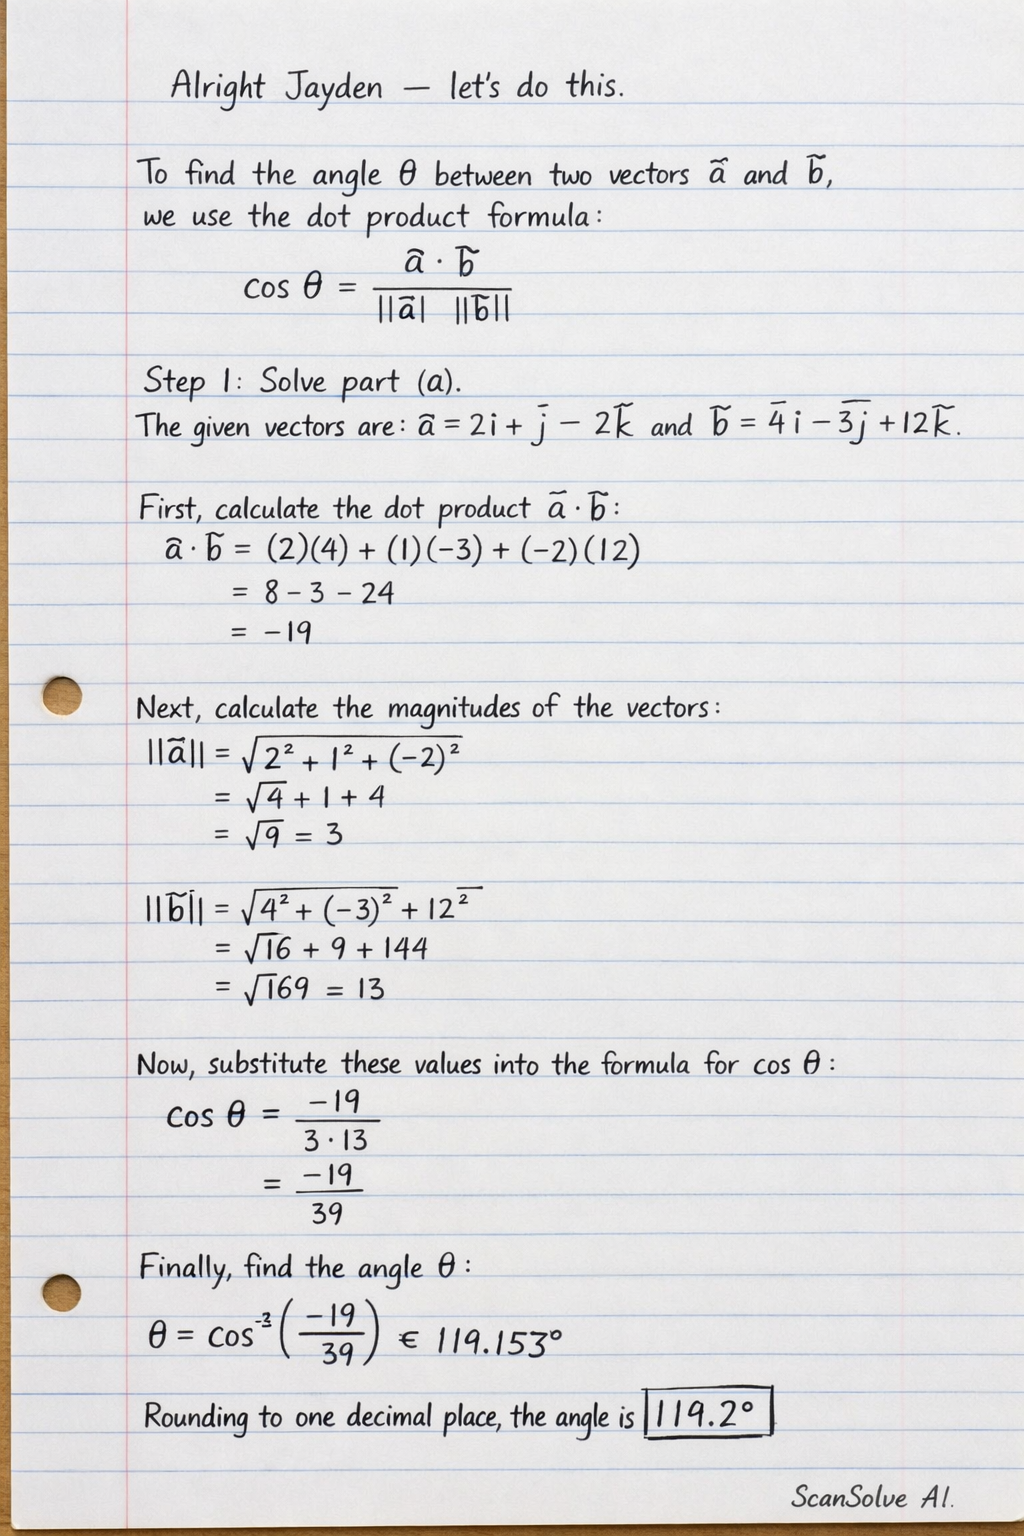 Alright Jayden — let's do this.
To find the angle θ between two vectors ã and b̃,
we use the dot product formula:
cos θ = ã · b̃ / ||ã| ||b̃||
Step 1: Solve part (a).
The given vectors are: ã = 2i + j̄ − 2k̃ and b̃ = 4̄i − 3̄j̄ + 12k̃.
First, calculate the dot product ã · b̃:
ã · b̃ = (2)(4) + (1)(−3) + (−2)(12)
= 8 − 3 − 24
= −19
Next, calculate the magnitudes of the vectors:
||ã|| = √2² + 1² + (−2)²
= √4 + 1 + 4
= √9 = 3
||b̃|| = √4² + (−3)² + 12²
= √16 + 9 + 144
= √169 = 13
Now, substitute these values into the formula for cos θ:
cos θ = −19 / 3 · 13
= −19 / 39
Finally, find the angle θ:
θ = cos⁻³(−19 / 39) € 119.153°
Rounding to one decimal place, the angle is 119.2°
ScanSolve AI.